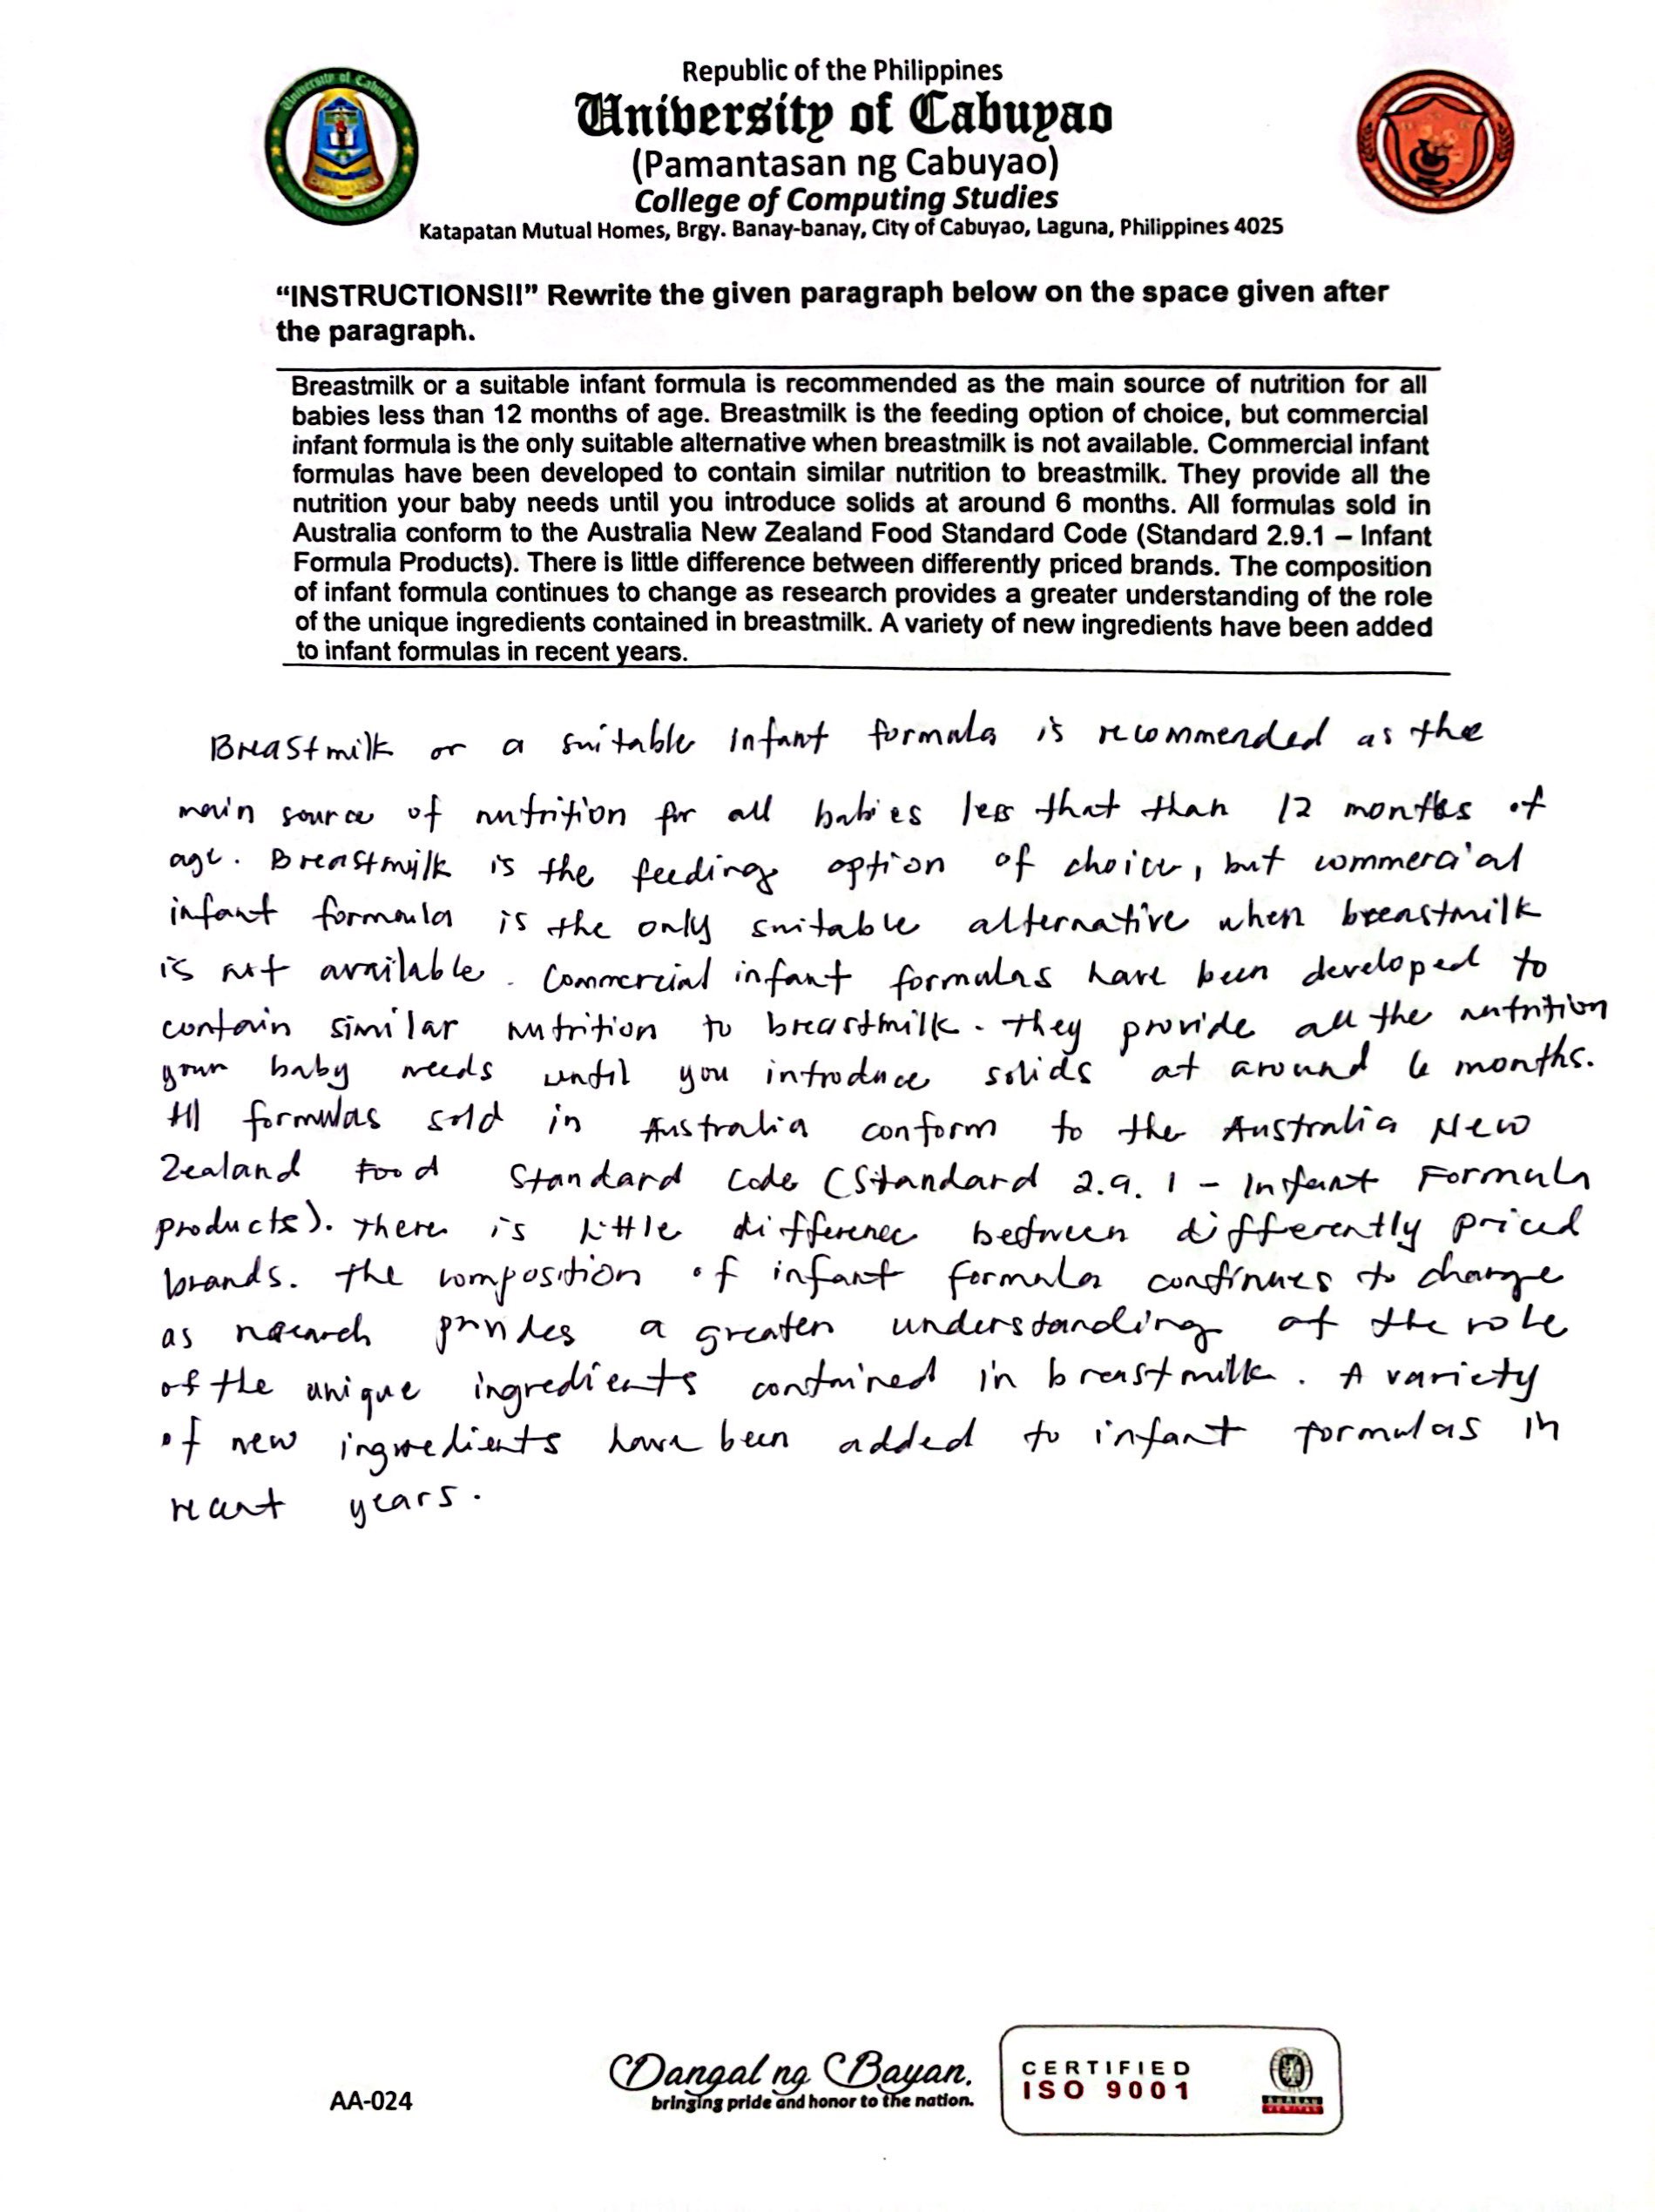 Republic of the Philippines
University of Cabuyao
(Pamantasan ng Cabuyao)
College of Computing Studies
Katapatan Mutual Homes, Brgy. Banay-banay, City of Cabuyao, Laguna, Philippines 4025
“INSTRUCTIONS!!” Rewrite the given paragraph below on the space given after
the paragraph.
Breastmilk or a suitable infant formula is recommended as the main source of nutrition for all
babies less than 12 months of age. Breastmilk is the feeding option of choice, but commercial
infant formula is the only suitable alternative when breastmilk is not available. Commercial infant
formulas have been developed to contain similar nutrition to breastmilk. They provide all the
nutrition your baby needs until you introduce solids at around 6 months. All formulas sold in
Australia conform to the Australia New Zealand Food Standard Code (Standard 2.9.1 – Infant
Formula Products). There is little difference between differently priced brands. The composition
of infant formula continues to change as research provides a greater understanding of the role
of the unique ingredients contained in breastmilk. A variety of new ingredients have been added
to infant formulas in recent years.
Breastmilk or a suitable infant formula is recommended as the
main source of nutrition for all babies less that than 12 months of
age. Breastmilk is the feeding option of choice, but commercial
infant formula is the only suitable alternative when breastmilk
is not available. Commercial infant formulas have been developed to
contain similar nutrition to breastmilk. They provide all the nutrition
your baby needs until you introduce solids at around 6 months.
All formulas sold in Australia conform to the Australia New
Zealand Food Standard Code (Standard 2.9.1 - Infant Formula
products). There is little difference between differently priced
brands. The composition of infant formula continues to change
as research provides a greater understanding of the role
of the unique ingredients contained in breastmilk. A variety
of new ingredients have been added to infant formulas in
recent years.
AA-024
Dangal ng Bayan.
bringing pride and honor to the nation.
CERTIFIED
ISO 9001